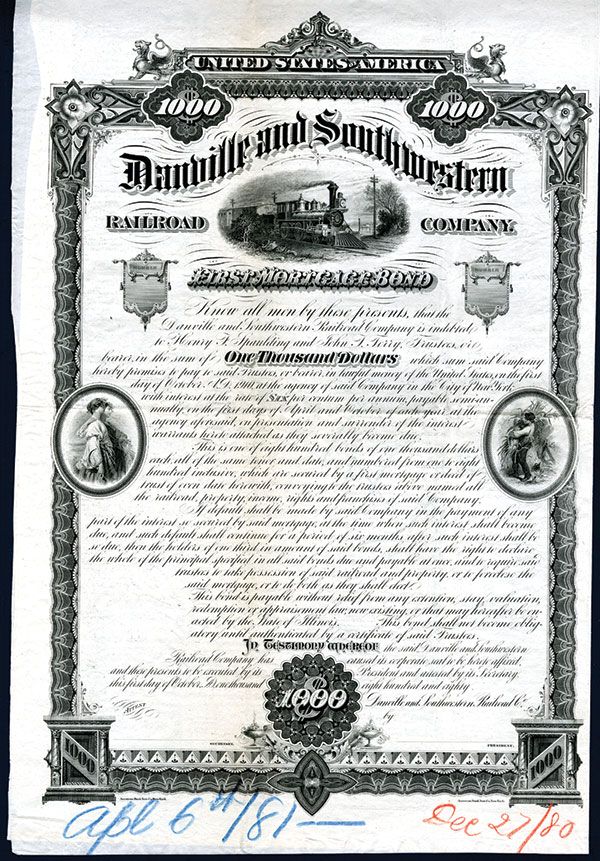 UNITED STATES OF AMERICA
$1000 $1000
Danville and Southwestern
RAILROAD COMPANY.
FIRST MORTGAGE BOND
NUMBER NUMBER
Know all men by these presents, that the
Danville and Southwestern Railroad Company is indebted
to Henry F. Spaulding and John T. Terry, Trustees, or
bearer, in the sum of One Thousand Dollars which sum said Company
hereby promises to pay to said Trustees, or bearer, in lawful money of the United States, on the first
day of October A.D. at the agency of said Company in the City of New York
with interest at the rate of Six per centum per annum, payable semi-an-
nually, on the first days of April and October of each year, at the
agency aforesaid, on presentation and surrender of the interest
warrants hereto attached as they severally become due.
This is one of eight hundred bonds of one thousand dollars
each, all of the same tenor and date, and numbered from one to eight
hundred inclusive, which are secured by a first mortgage or deed of
trust of even date herewith, conveying to the trustees above named all
the railroad, property, income, rights and franchises of said Company.
If default shall be made by said Company in the payment of any
part of the interest so secured by said mortgage, at the time when such interest shall become
due, and such default shall continue for a period of six months after such interest shall be
so due, then the holders of one third in amount of said bonds, shall have the right to declare
the whole of the principal specified in all said bonds due and payable at once, and to require said
trustees to take possession of said railroad and property, or to foreclose the
said mortgage, or to do both as they shall elect.
This bond is payable without relief from any extension, stay, valuation,
redemption or appraisement law, now existing, or that may hereafter be en-
acted by the State of Illinois. This bond shall not become oblig-
atory until authenticated by a certificate of said Trustees.
In Testimony Whereof, the said Danville and Southwestern
Railroad Company has caused its corporate seal to be hereto affixed,
and these presents to be executed by its President and attested by its Secretary
this first day of October, One thousand eight hundred and eighty.
$1,000
Attest Danville and Southwestern Railroad Co.
by
SECRETARY. PRESIDENT.
1000 1000
American Bank Note Co. New York. American Bank Note Co. New York.
Apl 6th/81— Dec 27/80